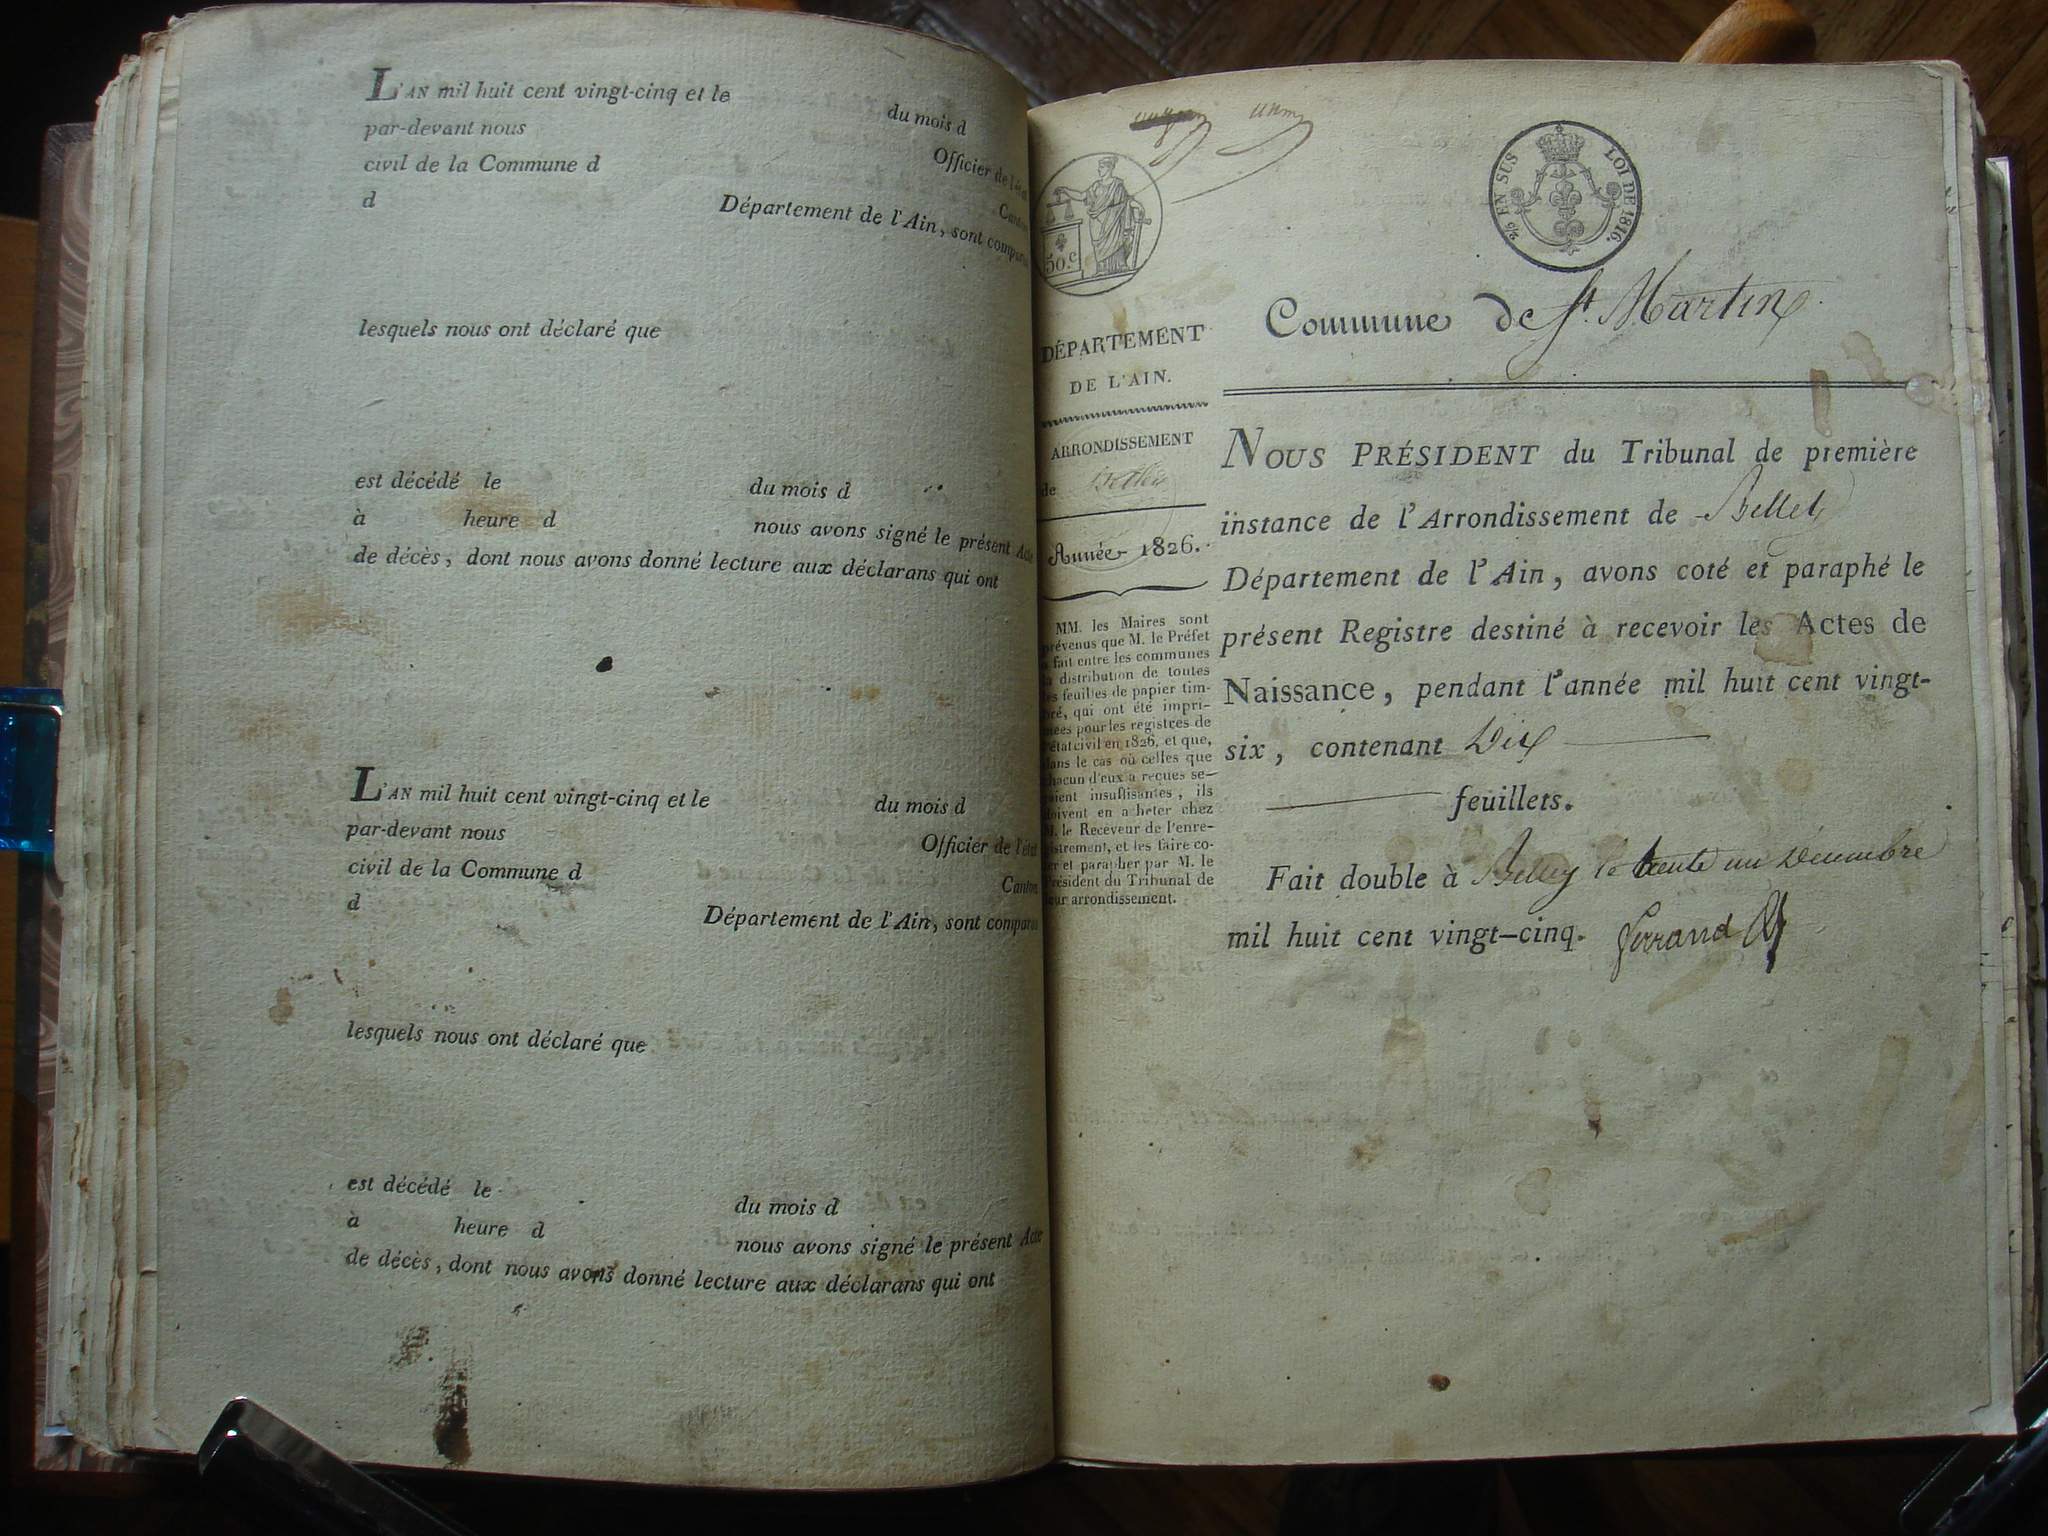 L'AN mil huit cent vingt-cinq et le du mois d
par-devant nous Officier de l'état
civil de la Commune d Canton
d Département de l'Ain, sont comparus
lesquels nous ont déclaré que
est décédé le du mois d
à heure d nous avons signé le présent Acte
de décès, dont nous avons donné lecture aux déclarans qui ont
L'AN mil huit cent vingt-cinq et le du mois d
par-devant nous Officier de l'état
civil de la Commune d Canton
d Département de l'Ain, sont comparus
lesquels nous ont déclaré que
est décédé le du mois d
à heure d nous avons signé le présent Acte
de décès, dont nous avons donné lecture aux déclarans qui ont
50.c
25 EN SUS LOI DE 1816.
DÉPARTEMENT
DE L'AIN.
ARRONDISSEMENT
de Belley
Année 1826.
MM. les Maires sont
prévenus que M. le Préfet
a fait entre les communes
la distribution de toutes
les feuilles de papier tim-
bré, qui ont été impri-
mées pour les registres de
l'état civil en 1826, et que,
dans le cas où celles que
chacun d'eux a reçues se-
raient insuffisantes, ils
doivent en acheter chez
M. le Receveur de l'enre-
gistrement, et les faire co-
ter et parapher par M. le
Président du Tribunal de
leur arrondissement.
Commune de St. Martin
NOUS PRÉSIDENT du Tribunal de première
instance de l'Arrondissement de Belley
Département de l'Ain, avons coté et paraphé le
présent Registre destiné à recevoir les Actes de
Naissance, pendant l'année mil huit cent vingt-
six, contenant Dix
feuillets.
Fait double à Belley le trente un Décembre
mil huit cent vingt-cinq. Ferrand